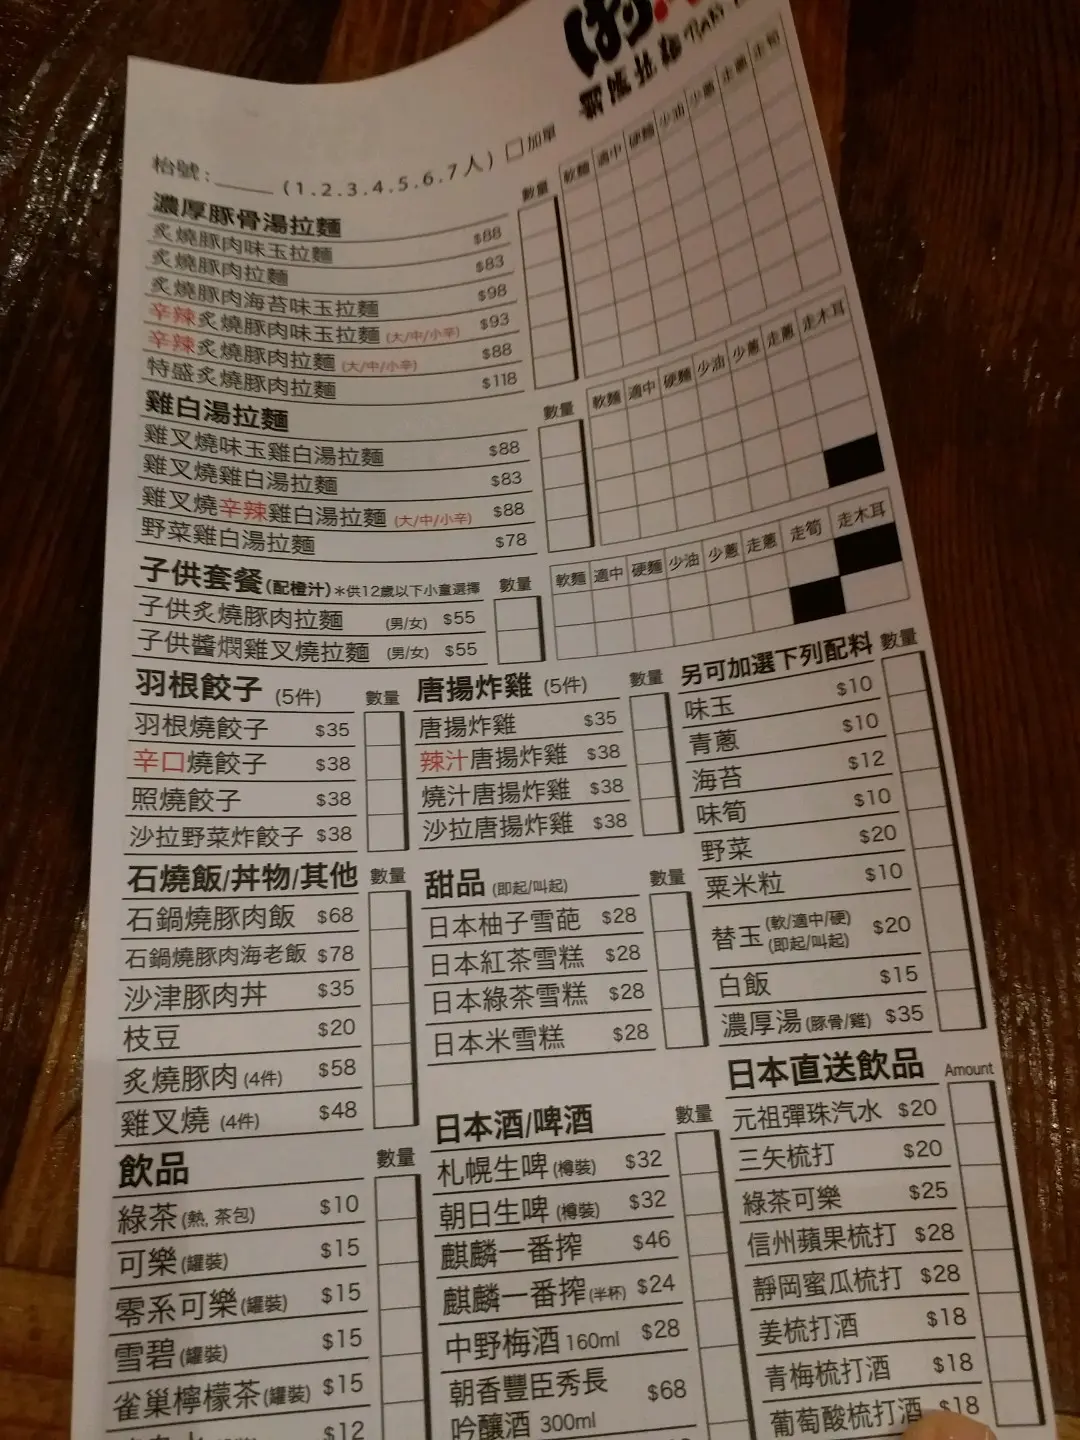 枱號：_____ (1.2.3.4.5.6.7人) □加單
濃厚豚骨湯拉麵 數量 軟麵 適中 硬麵 少油 少蔥 走蔥 走筍
炙燒豚肉味玉拉麵 $88
炙燒豚肉拉麵 $83
炙燒豚肉海苔味玉拉麵 $98
辛辣炙燒豚肉味玉拉麵 (大/中/小辛) $93
辛辣炙燒豚肉拉麵 (大/中/小辛) $88
特盛炙燒豚肉拉麵 $118
雞白湯拉麵 數量 軟麵 適中 硬麵 少油 少蔥 走蔥 走木耳
雞叉燒味玉雞白湯拉麵 $88
雞叉燒雞白湯拉麵 $83
雞叉燒辛辣雞白湯拉麵 (大/中/小辛) $88
野菜雞白湯拉麵 $78
子供套餐(配橙汁) *供12歲以下小童選擇 數量 軟麵 適中 硬麵 少油 少蔥 走蔥 走筍 走木耳
子供炙燒豚肉拉麵 (男/女) $55
子供醬燜雞叉燒拉麵 (男/女) $55
羽根餃子 (5件) 數量
羽根燒餃子 $35
辛口燒餃子 $38
照燒餃子 $38
沙拉野菜炸餃子 $38
唐揚炸雞 (5件) 數量
唐揚炸雞 $35
辣汁唐揚炸雞 $38
燒汁唐揚炸雞 $38
沙拉唐揚炸雞 $38
另可加選下列配料 數量
味玉 $10
青蔥 $10
海苔 $12
味筍 $10
野菜 $20
粟米粒 $10
替玉 (軟/適中/硬) (即起/叫起) $20
白飯 $15
濃厚湯 (豚骨/雞) $35
石燒飯/丼物/其他 數量
石鍋燒豚肉飯 $68
石鍋燒豚肉海老飯 $78
沙津豚肉丼 $35
枝豆 $20
炙燒豚肉 (4件) $58
雞叉燒 (4件) $48
甜品 (即起/叫起) 數量
日本柚子雪葩 $28
日本紅茶雪糕 $28
日本綠茶雪糕 $28
日本米雪糕 $28
日本直送飲品 Amount
元祖彈珠汽水 $20
三矢梳打 $20
綠茶可樂 $25
信州蘋果梳打 $28
靜岡蜜瓜梳打 $28
姜梳打酒 $18
青梅梳打酒 $18
葡萄酸梳打酒 $18
飲品 數量
綠茶 (熱, 茶包) $10
可樂 (罐裝) $15
零系可樂 (罐裝) $15
雪碧 (罐裝) $15
雀巢檸檬茶 (罐裝) $15
$12
日本酒/啤酒 數量
札幌生啤 (樽裝) $32
朝日生啤 (樽裝) $32
麒麟一番搾 $46
麒麟一番搾 (半杯) $24
中野梅酒 160ml $28
朝香豐臣秀長
吟釀酒 300ml $68